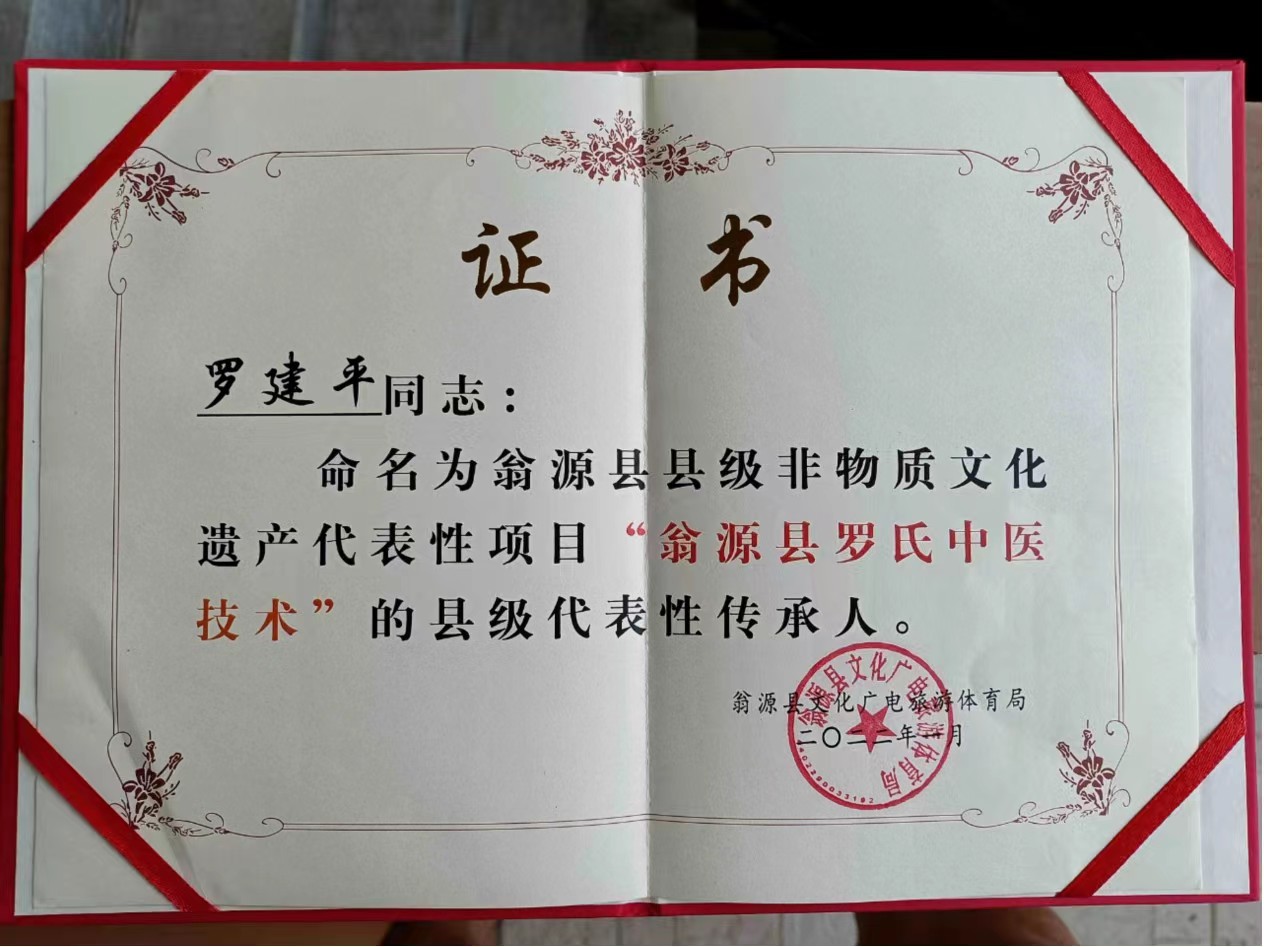 证书
罗建平同志：
命名为翁源县县级非物质文化
遗产代表性项目“翁源县罗氏中医
技术”的县级代表性传承人。
翁源县文化广电旅游体育局
二〇二二年一月
翁源县文化广电旅游体育局